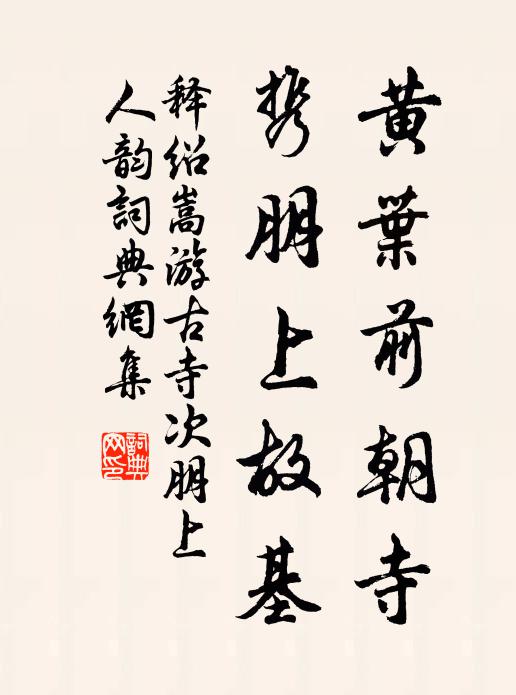 黃葉前朝寺
携朋上故基
释绍嵩游古寺次朋上
人韵詞典網集
詞典
网印